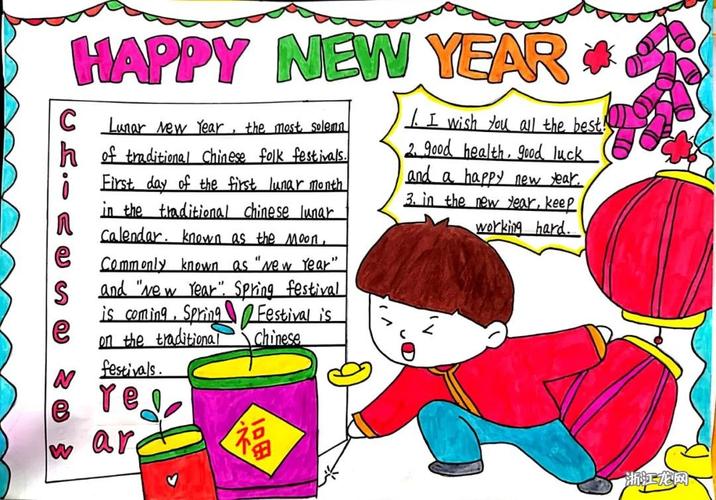 HAPPY NEW YEAR
Chinese New
Year
Lunar New Year, the most solemn
of traditional Chinese folk festivals.
First day of the first lunar month
in the traditional chinese lunar
Calendar. known as the Moon,
Commonly known as "new Year"
and "New Year". Spring festival
is coming, Spring Festival is
on the traditional Chinese
festivals.
1. I wish you all the best!
2. good health, good luck
and a happy new year.
3. in the new year, keep
working hard.
福
浙江龙网